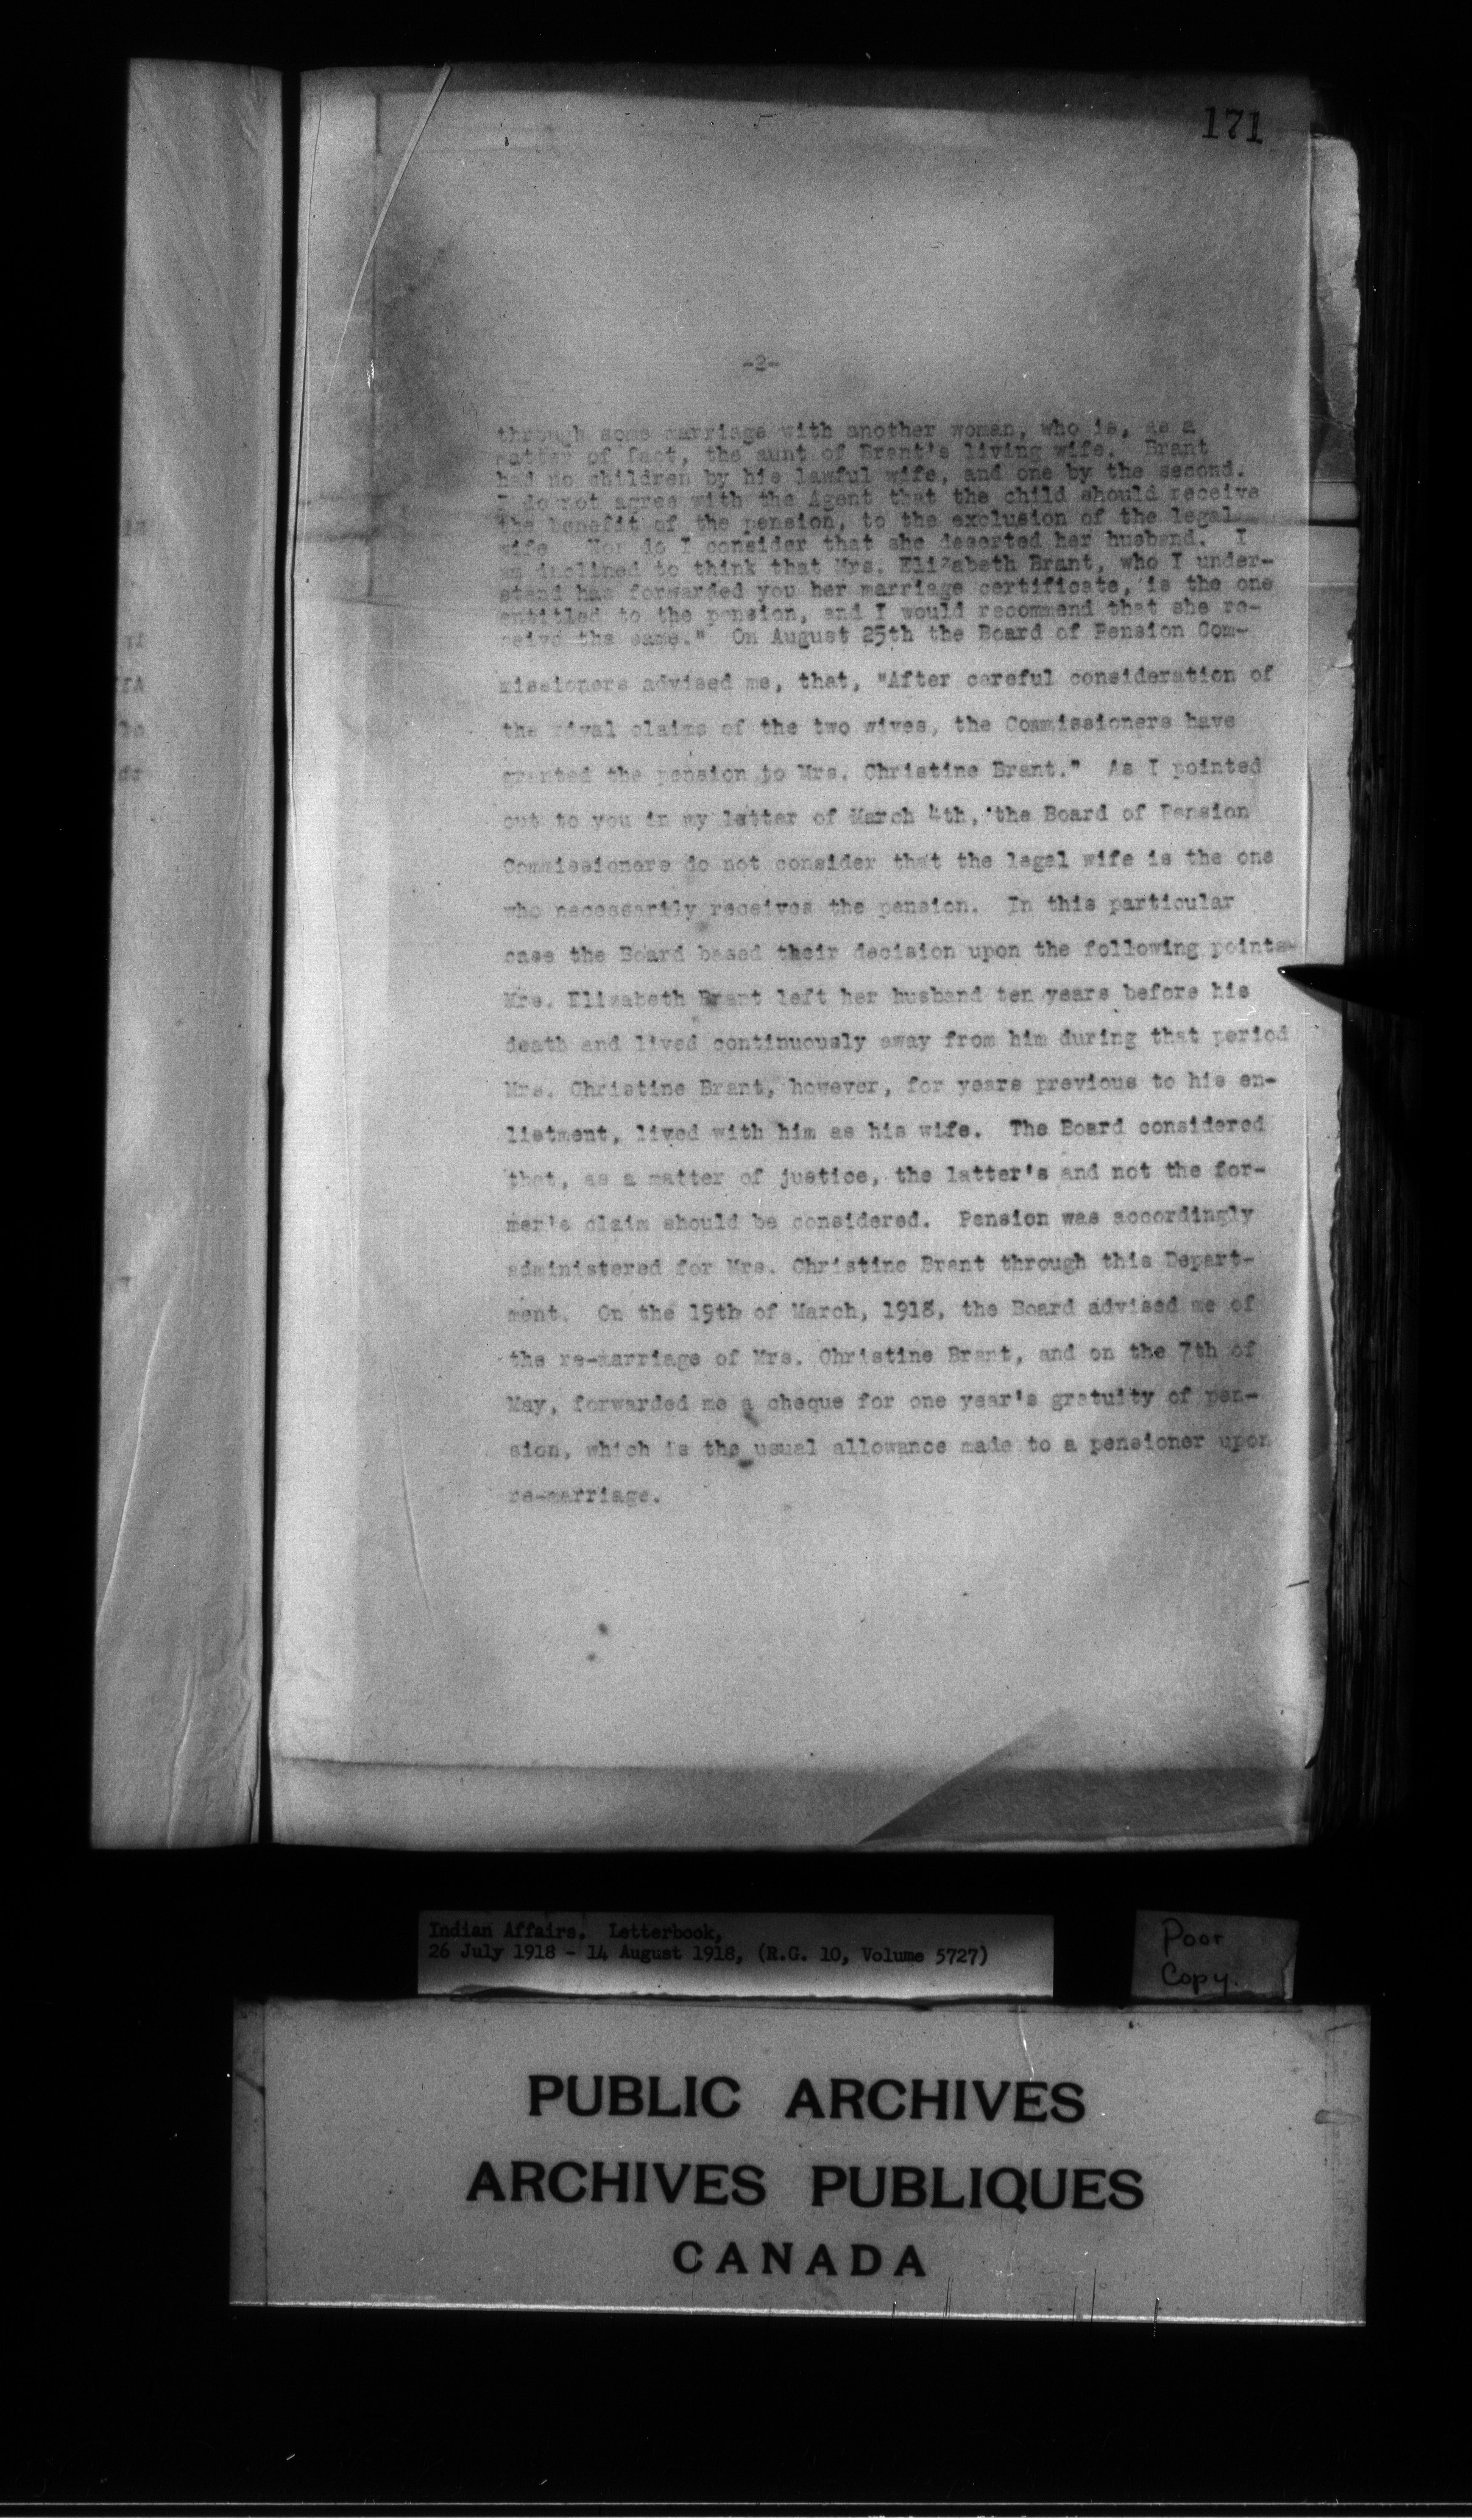 171
-2-
through some marriage with another woman, who is, as a
matter of fact, the aunt of Brant's living wife. Brant
had no children by his lawful wife, and one by the second.
I do not agree with the Agent that the child should receive
the benefit of the pension, to the exclusion of the legal
wife Nor do I consider that she deserted her husband. I
am inclined to think that Mrs. Elizabeth Brant, who I under-
stand has forwarded you her marriage certificate, is the one
entitled to the pension, and I would recommend that she re-
ceive the same." On August 25th the Board of Pension Com-
missioners advised me, that, "After careful consideration of
the rival claims of the two wives, the Commissioners have
granted the pension to Mrs. Christine Brant." As I pointed
out to you in my letter of March 4th, the Board of Pension
Commissioners do not consider that the legal wife is the one
who necessarily receives the pension. In this particular
case the Board based their decision upon the following points-
Mrs. Elizabeth Brant left her husband ten years before his
death and lived continuously away from him during that period
Mrs. Christine Brant, however, for years previous to his en-
listment, lived with him as his wife. The Board considered
that, as a matter of justice, the latter's and not the for-
mer's claim should be considered. Pension was accordingly
administered for Mrs. Christine Brant through this Depart-
ment. On the 19th of March, 1918, the Board advised me of
the re-marriage of Mrs. Christine Brant, and on the 7th of
May, forwarded me a cheque for one year's gratuity of pen-
sion, which is the usual allowance made to a pensioner upon
re-marriage.
Indian Affairs. Letterbook,
26 July 1918 - 14 August 1918, (R.G. 10, Volume 5727)
Poor
Copy.
PUBLIC ARCHIVES
ARCHIVES PUBLIQUES
CANADA